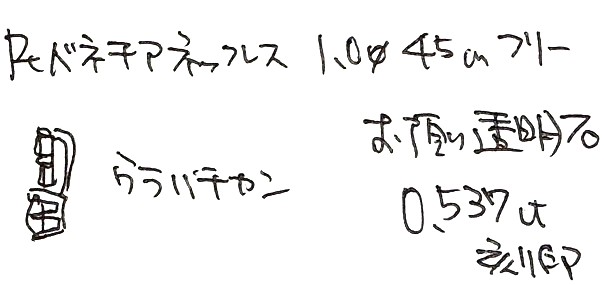 Ptベネチアネックレス 1.0φ 45cm フリー
お預り透明石
ウラバチカン
0.537ct
刻印